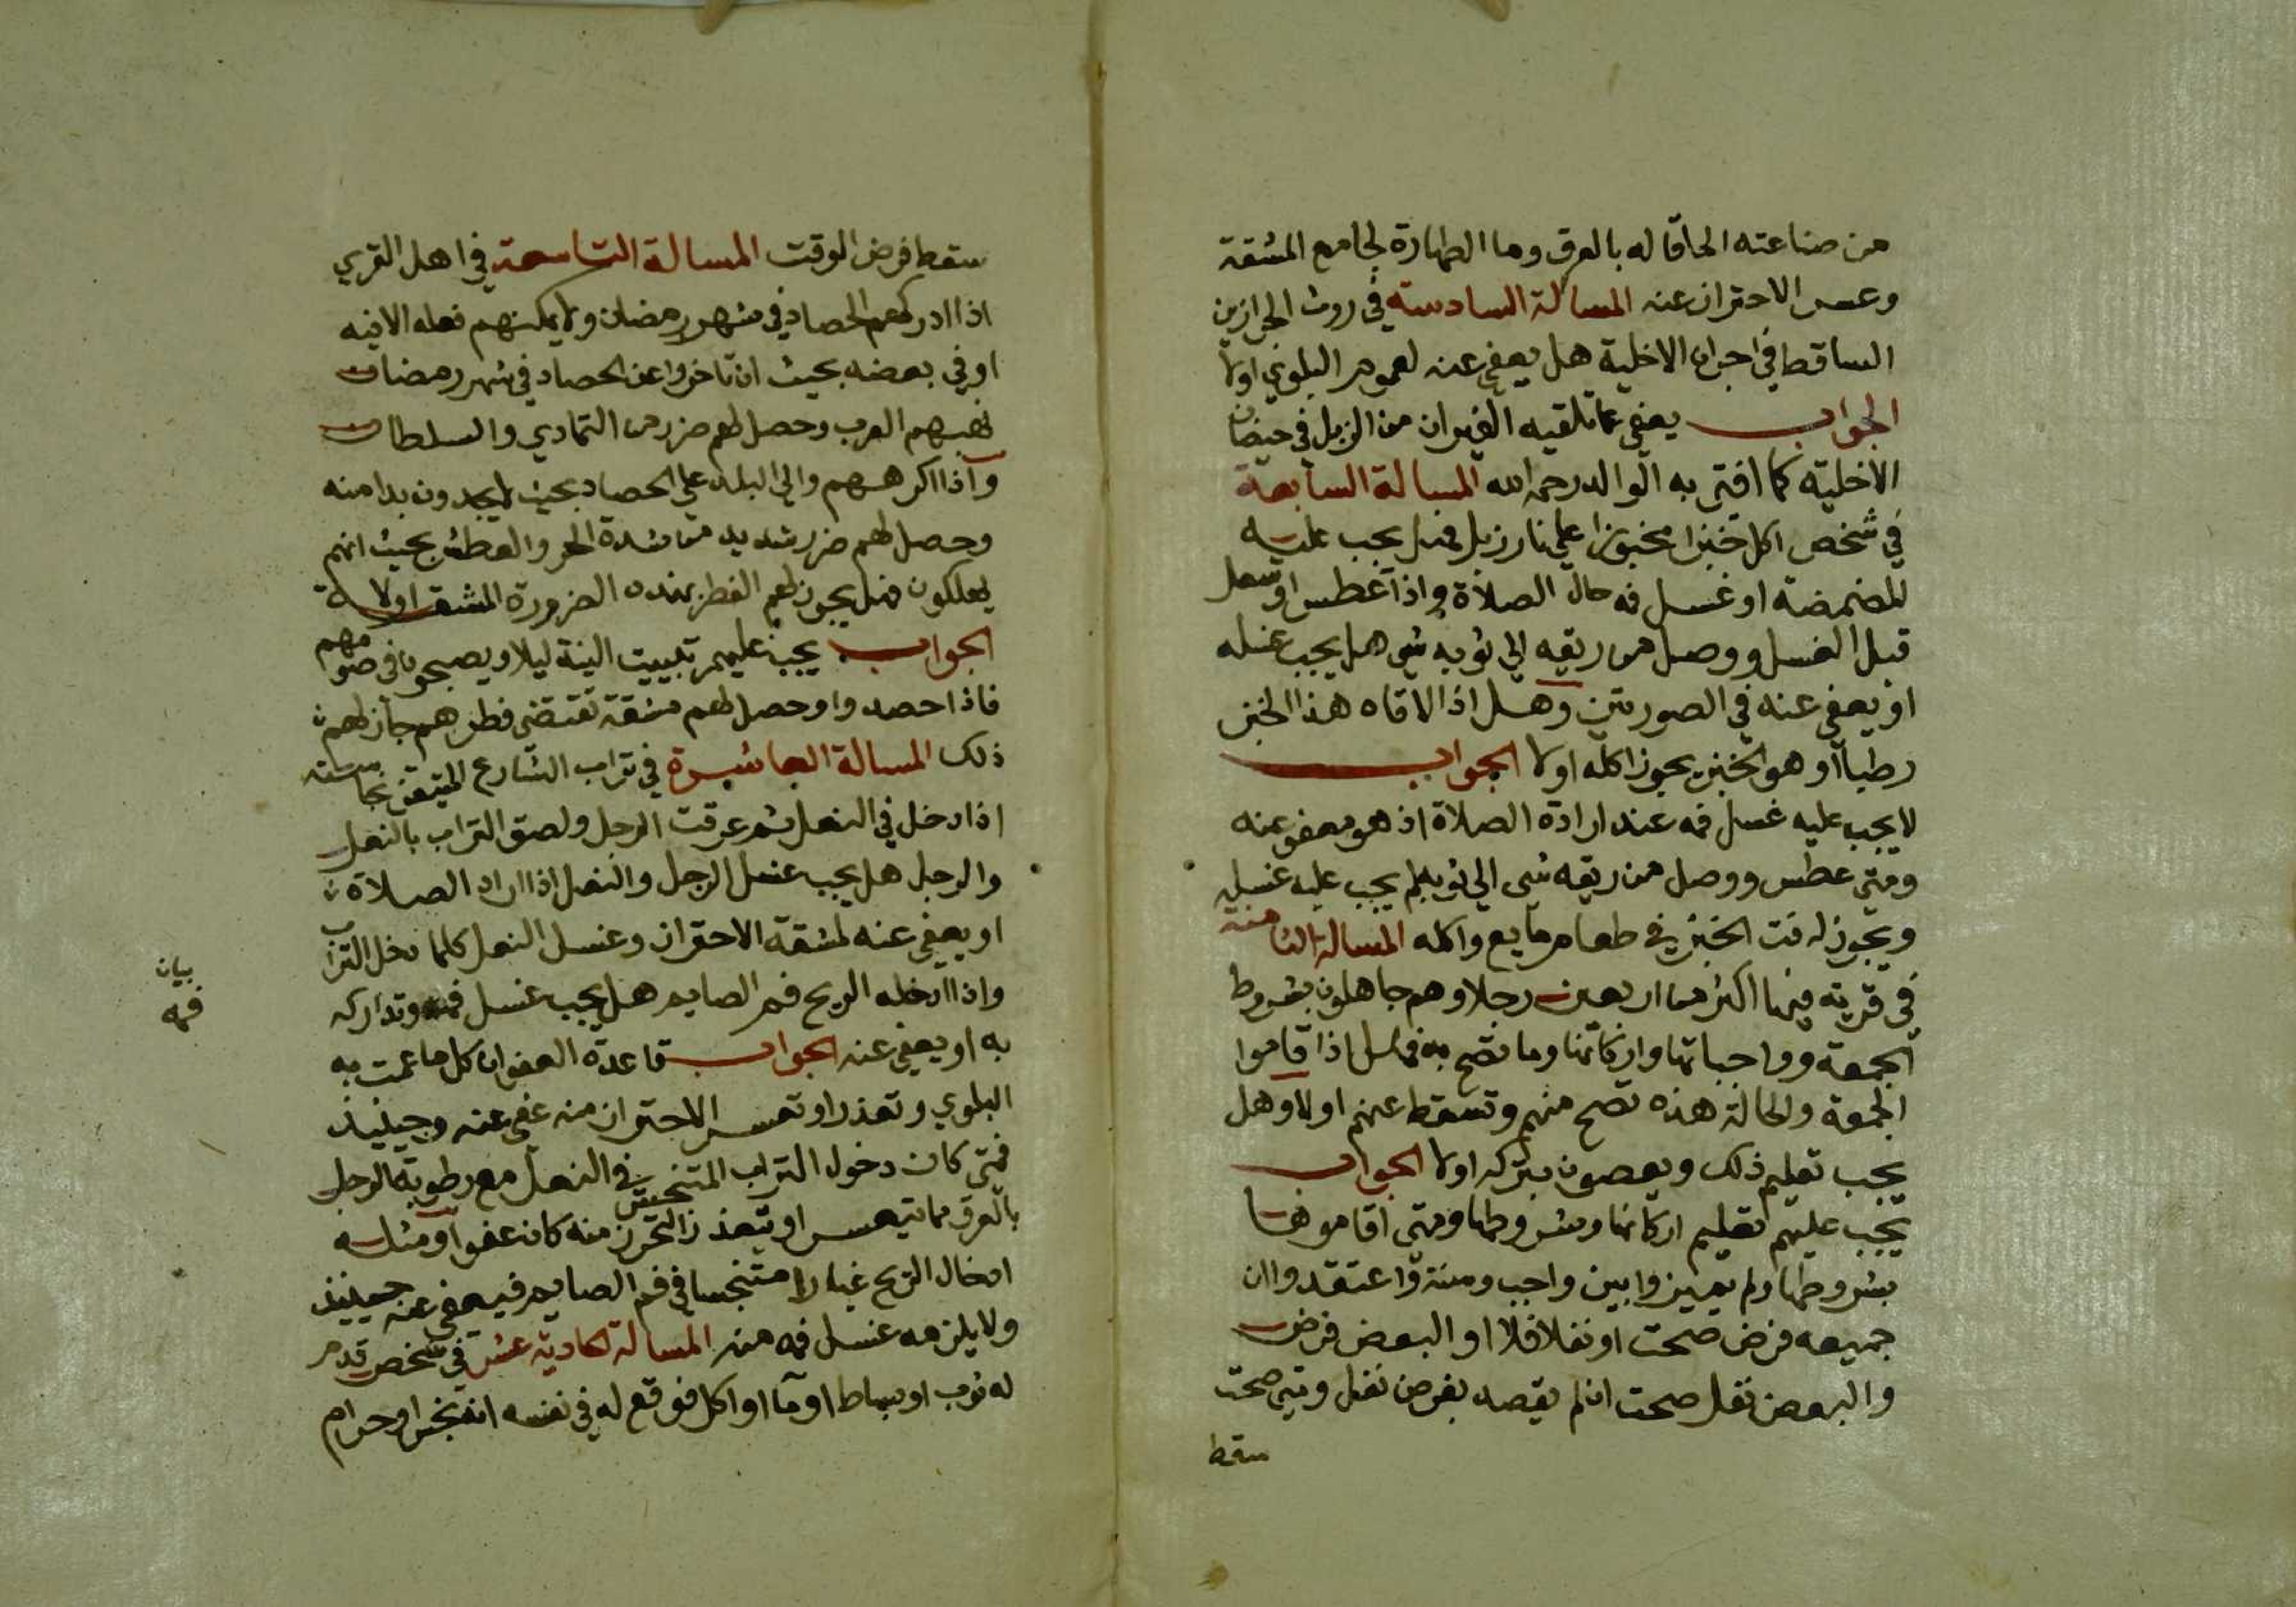 من صناعته الحاقا له بالعرق وما الطهارة بجامع المشقة
وعسر الاحتراز عنه المسالة السادسة في روث
الساقط في اجران الاخلية هل يعفى عنه لعموم البلوي اولا
الجواب يعفى عما تلقيه الفيران من الزبل في حيضان
الاخلية كما افتى به الوالد رحمه الله المسالة السابعة
في شخص اكل خبزا مخبوزا علي نار زبل فهل يجب عليه
المضمضة او غسل فه حال الصلاة واذا عطس او سعل
قبل الغسل ووصل من ريقه الي ثوبه شي هل يجب غسله
او يعفى عنه في الصورتين وهل اذا لاقاه هذا الخبز
رطبا او هو الخبز يجوز اكله اولا الجواب
لا يجب عليه غسل فمه عند ارادة الصلاة اذ هو معفو عنه
ومتي عطس ووصل من ريقه شي الي ثوبه لم يجب عليه غسله
ويجوز له فت الخبز في طعام مايع واكله المسالة الثامنة
في قرية فيها اكثر من اربعين رجلا وهم جاهلون بشروط
الجمعة وواجباتها واركانها وما تصح به فهل اذا قاموا
الجمعة والحالة هذه تصح منهم وتسقط عنهم اولا وهل
يجب تعليم ذلك ويعصون بتركه اولا الجواب
يجب عليهم تعليم اركانها وشروطها ومتي اقاموها
بشروطها ولم يميزوا بين واجب وسنة واعتقدوا ان
جميعه فرض صحت او نفلا فلا او البعض فرض
والبعض نفل صحت ان لم يقصد بفرض نفل ومتي صحت
سقط
سقط فرض الوقت المسالة التاسعة في اهل القري
اذا ادركهم الحصاد في شهر رمضان ولا يمكنهم فعله الا فيه
او في بعضه بحيث ان تاخروا عن الحصاد في شهر رمضان
نهبهم العرب وحصل لهم ضرر من التمادي والسلطان
واذا اكرههم والي البلد علي الحصاد بحيث لا يجدون بدا منه
وحصل لهم ضرر شديد من شدة الحر والعطش بحيث انهم
يهلكون فهل يجوز لهم الفطر بهذه الضرورة المشقة اولا
الجواب يجب عليهم تبييت النية ليلا ويصبحون في صومهم
فاذا حصدوا وحصل لهم مشقة تقتضي فطرهم جاز لهم
ذلك المسالة العاشرة في تراب الشارع المتيقن نجاسته
اذا دخل في النعل ثم عرقت الرجل ولصق التراب بالنعل
والرجل هل يجب غسل الرجل والنعل اذا اراد الصلاة
او يعفى عنه لمشقة الاحتراز وغسل النعل كلما دخل التراب
واذا ادخله الريح فم الصايم هل يجب غسل فمه وتداركه
بيان
فمه
به او يعفى عنه الجواب قاعدة العفو ان كل ما عمت به
البلوي وتعذر او تعسر الاحتراز منه عفي عنه وحينيذ
فمتي كان دخول التراب المتنجس في النعل مع رطوبة الرجل
بالعرق مما يتعسر او يتعذر التحرز منه كان عفوا ومثله
ادخال الريح غبارا متنجسا في فم الصايم فيعفى عنه حينيذ
ولا يلزمه غسل فمه منه المسالة الحادية عشر في شخص قدم
له ثوب او بساط او ما او اكل فوقع له في نفسه انه نجس او حرام